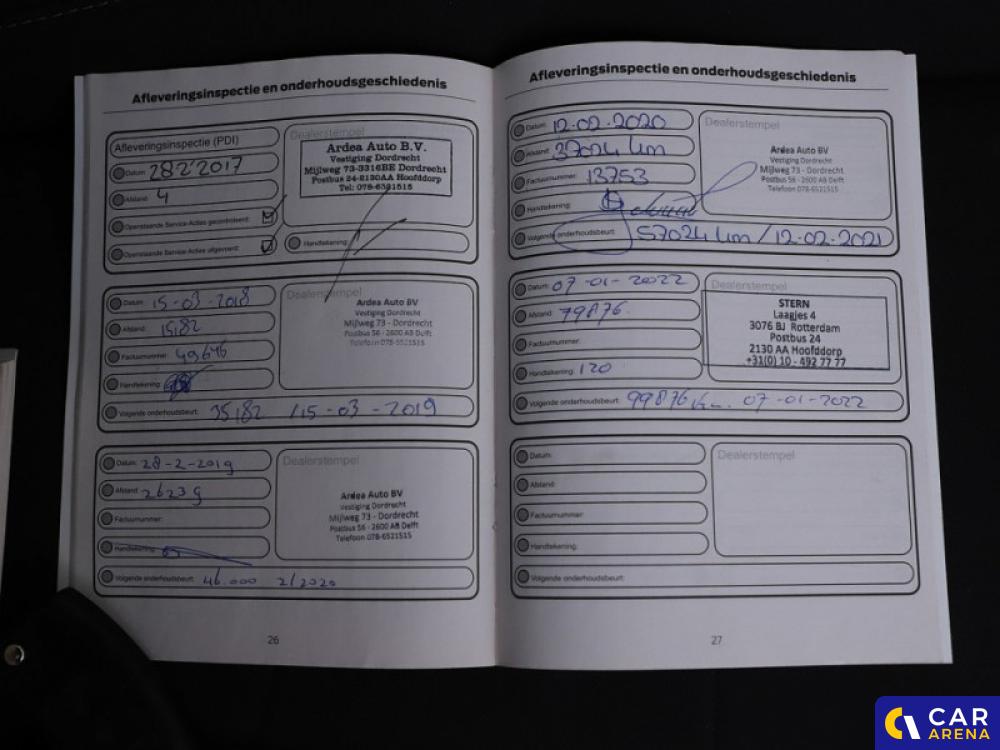 Afleveringsinspectie en onderhoudsgeschiedenis
Afleveringsinspectie (PDI)
Datum: 28 2 2017
Afstand: 4
Openstaande Service-Acties gecontroleerd:
Openstaande Service-Acties uitgevoerd:
Dealerstempel
Ardea Auto B.V.
Vestiging Dordrecht
Mijlweg 73-3316BE Dordrecht
Postbus 24-2130AA Hoofddorp
Tel: 078-6521515
Handtekening:
Datum: 15-03-2018
Afstand: 15182
Factuurnummer: 49646
Handtekening:
Volgende onderhoudsbeurt: 35182 / 15-03-2019
Dealerstempel
Ardea Auto BV
Vestiging Dordrecht
Mijlweg 73 - Dordrecht
Postbus 56 - 2600 AB Delft
Telefoon 078-6521515
Datum: 28-2-2019
Afstand: 26239
Factuurnummer:
Handtekening:
Volgende onderhoudsbeurt: 46.000 2/2020
Dealerstempel
Ardea Auto BV
Vestiging Dordrecht
Mijlweg 73 - Dordrecht
Postbus 56 - 2600 AB Delft
Telefoon 078-6521515
26
Afleveringsinspectie en onderhoudsgeschiedenis
Datum: 12-02-2020
Afstand: 37024 km
Factuurnummer: 13753
Handtekening:
Volgende onderhoudsbeurt: 57024 km / 12-02-2021
Dealerstempel
Ardea Auto BV
Vestiging Dordrecht
Mijlweg 73 - Dordrecht
Postbus 56 - 2600 AB Delft
Telefoon 078-6521515
Datum: 07-01-2022
Afstand: 79876
Factuurnummer:
Handtekening: 120
Volgende onderhoudsbeurt: 99876 km 07-01-2022
Dealerstempel
STERN
Laagjes 4
3076 BJ Rotterdam
Postbus 24
2130 AA Hoofddorp
+31(0)10 - 492 77 77
Datum:
Afstand:
Factuurnummer:
Handtekening:
Volgende onderhoudsbeurt:
Dealerstempel
27
CAR
ARENA